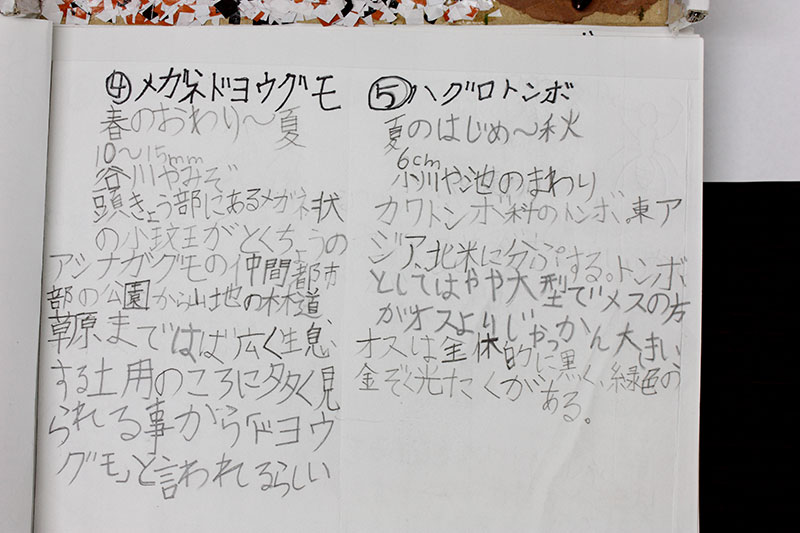 ④メガネドヨウグモ
春のおわり〜夏
10〜15mm
谷川やみぞ
頭きょう部にあるメガネ状
の小紋王がとくちょうの
アシナガグモの仲間都市
部の公園から山地の林道
草原まではば広く生息
する土用のころに多く見
られる事から「ドヨウ
グモ」と言われてるらしい
⑤ハグロトンボ
夏のはじめ〜秋
6cm
小川や池のまわり
カワトンボ科のトンボ、東ア
ジア、北米に分ぷする。トンボ
としてはやや大型でメスの方
がオスよりじゃっかん大きい
オスは全体的に黒く、緑色の
金ぞく光たくがある。